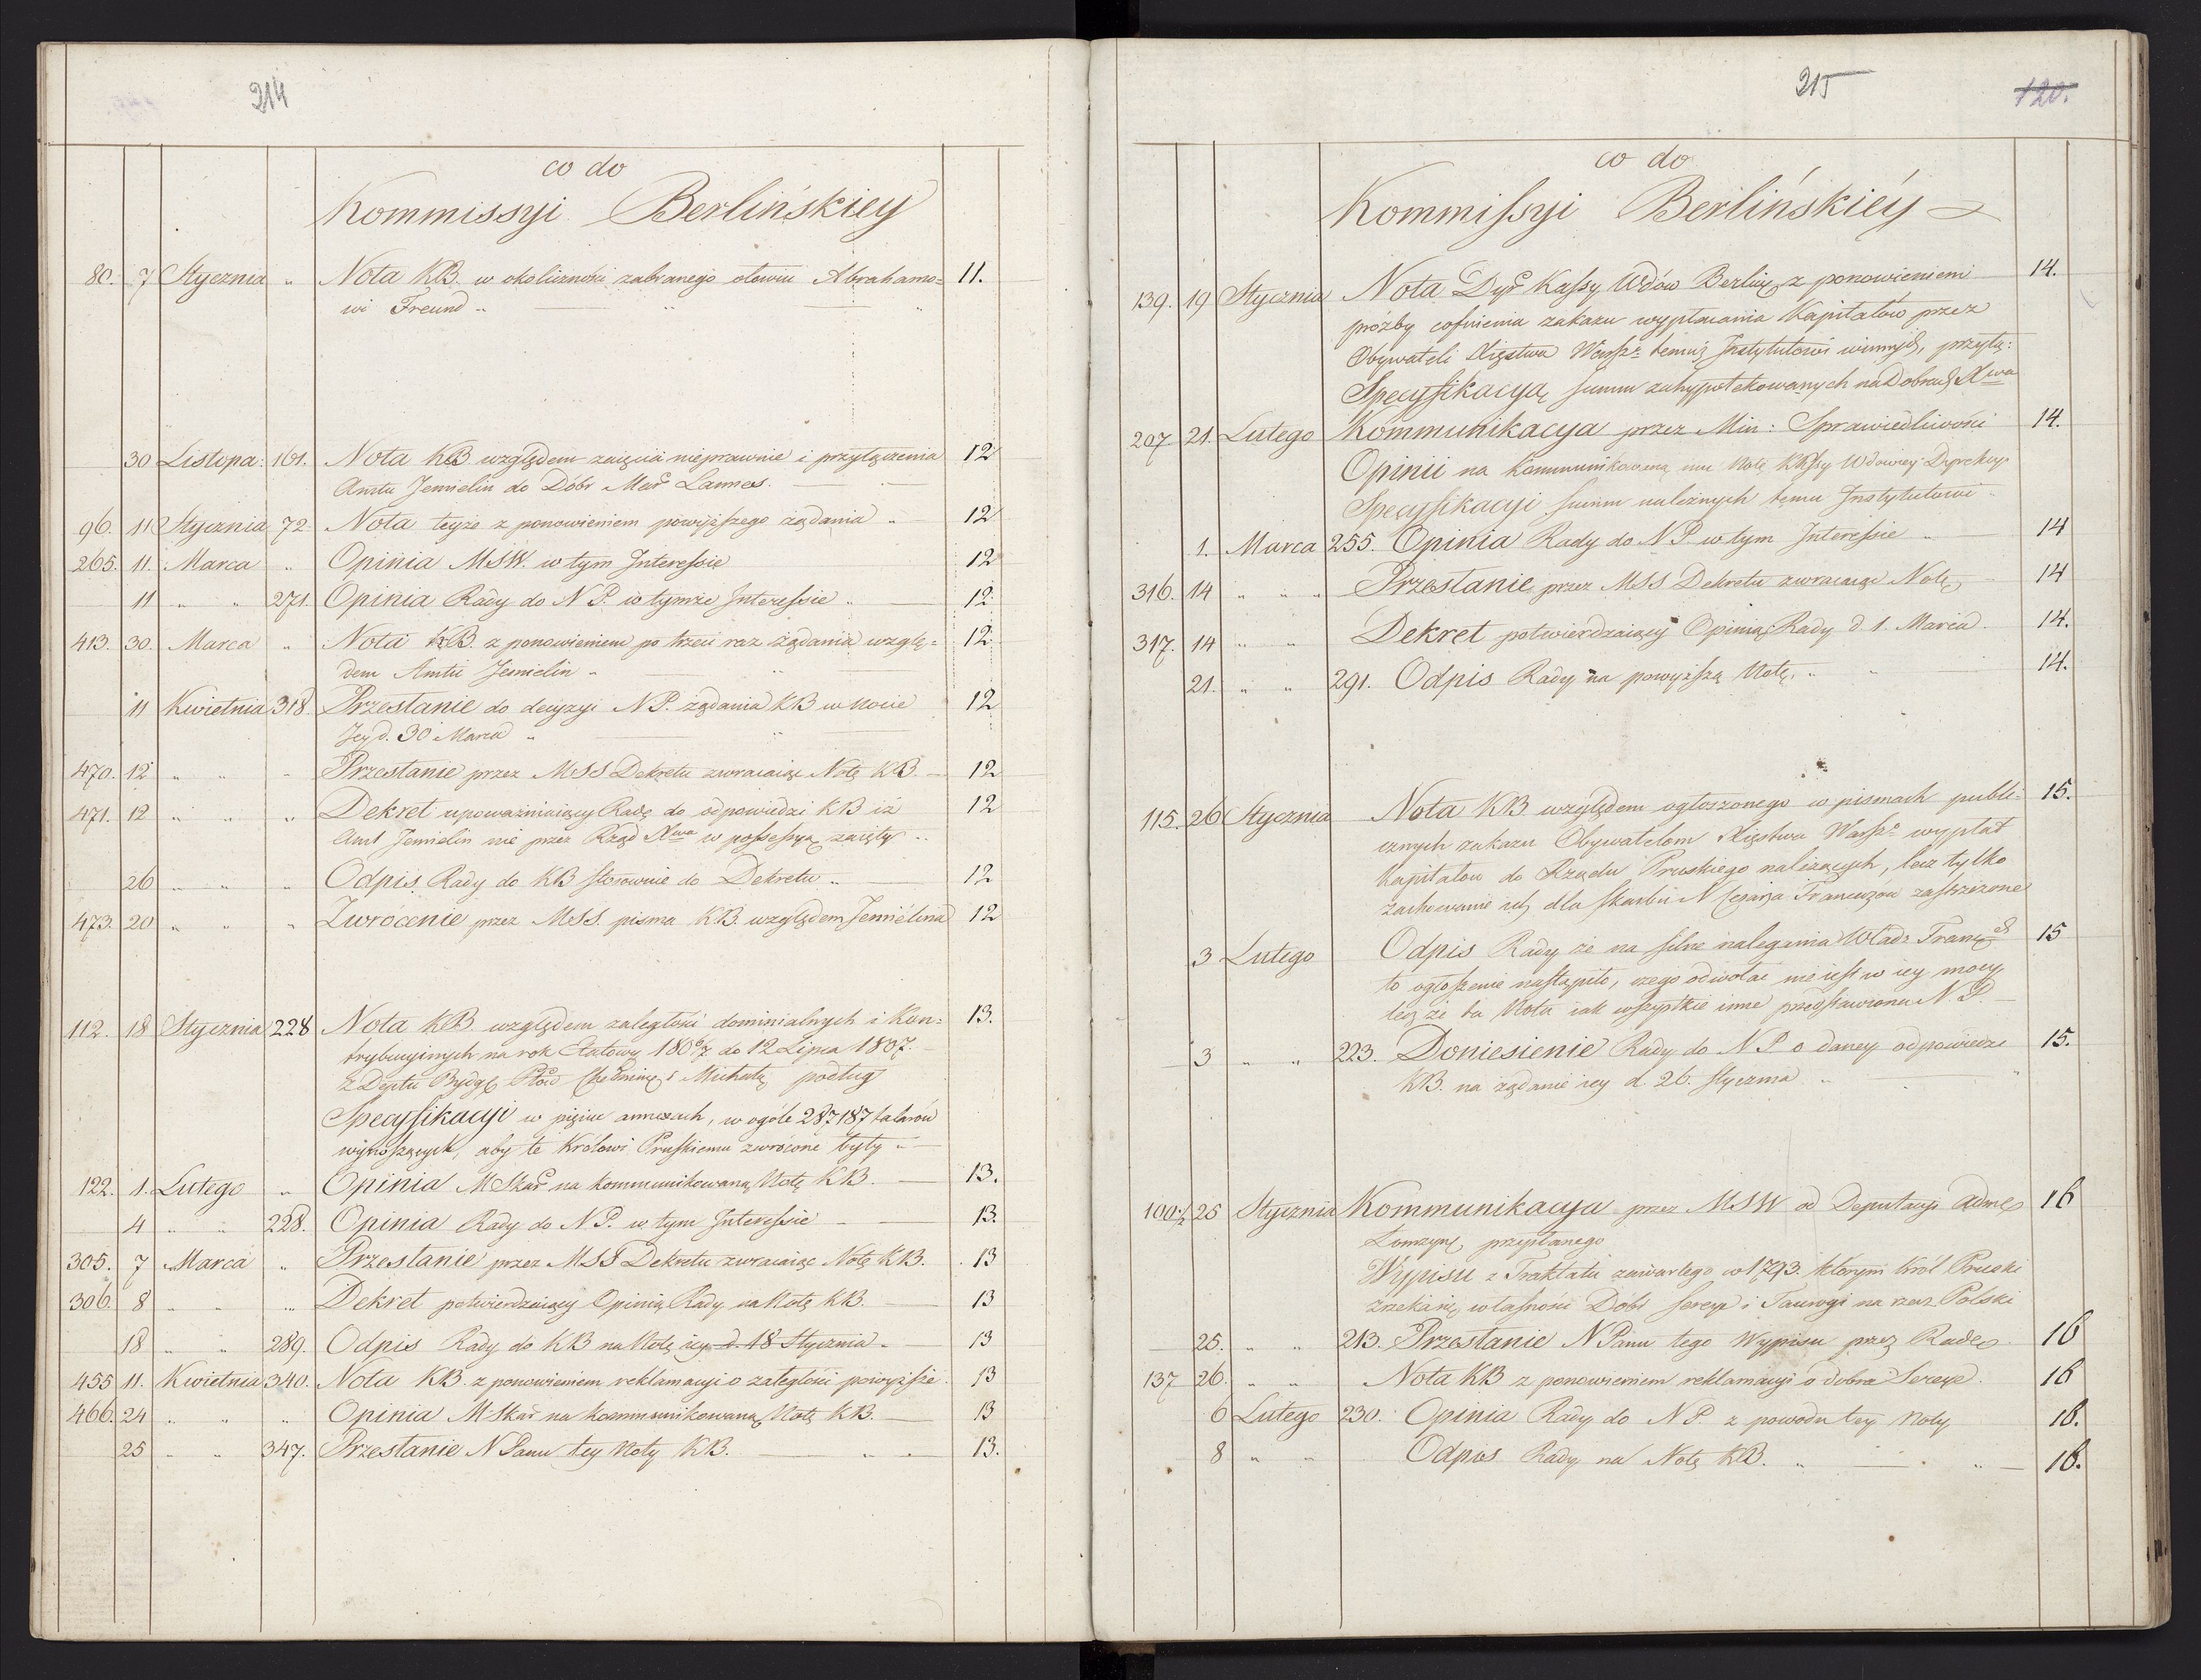 214
co do
Kommissyi Berlińskiey
80. 7 Stycznia „ Nota KB. w okoliczności zabranego ołowiu Abrahamo= 11.
wi Freund „
30 Listopa: 161. Nota KB. względem zaięcia nieprawnie i przyłączenia 12
Amtu Jemielin do Dóbr Mar Lannes.
96. 11 Stycznia 72. Nota teyże z ponowieniem powyższego żądania „ 12
265. 11. Marca „ Opinia MSW. w tym Interessie 12
11 „ „ 271. Opinia Rady do N P. w tymże Interessie „ 12.
413. 30. Marca „ Nota KB. z ponowieniem po trzeci raz żądania wzglę= 12.
dem Amtu Jemielin „
11 Kwietnia 318. Przesłanie do decyzyi N P. żądania KB w Nocie 12
Jey d. 30 Marca „
470. 12 „ „ „ Przesłanie przez MSS Dekretu zwracaiąc Notę KB. 12
471. 12 „ „ „ Dekret upoważniaiący Radę do odpowiedzi KB iż 12
Amt Jemielin nie przez Rząd Xwa w possessyą zaięty „
26 „ „ „ Odpis Rady do KB stosownie do Dekretu „ 12
473. 20 „ „ „ Zwrócenie przez MSS. pisma KB. względem Jemielina 12
112. 18 Stycznia 228 Nota KB. względem zaległości dominialnych i Kon= 13.
trybucyinych na rok Etatowy 180 6/7 do 12 Lipca 1807.
z Deptu Bydg Płoc i Michał podług
Specyfikacyi w pięciu annexach, w ogóle 287187 talarów
wynoszących, aby te Królowi Pruskiemu zwrócone były „
122. 1. Lutego „ Opinia MSkar na kommunikowaną Notę KB. 13.
4 „ „ 228. Opinia Rady do N P. w tym Interessie 13.
305. 7 Marca „ Przesłanie przez MSS Dekretu zwracaiąc Notę KB. 13
306. 8 „ „ „ Dekret potwierdzaiący Opinią Rady na Notę KB. 13
18 „ „ 289. Odpis Rady do KB na Notę iey d. 18 Stycznia. 13
455 11. Kwietnia 340. Nota KB. z ponowieniem reklamacyi o zaległości powyższe. 13
466. 24 „ „ „ Opinia MSkar na kommunikowaną Notę KB. 13
25 „ „ 347. Przesłanie N Panu tey Noty KB. 13.
215
120.
co do
Kommissyi Berlińskiéy
139. 19 Stycznia Nota Dyr Kassy Wdów Berliń z ponowieniem 14.
próżby cofnienia zakazu wypłacania Kapitałów przez
Obywateli Xięstwa Warsz temuż Instytutowi winnych, przyłą:
Specyfikacyą summ zahypotekowanych na Dobrach Xwa
207 21. Lutego Kommunikacya przez Min: Sprawiedliwości 14.
Opinii na kommunikowaną mu Notę Kassy Wdowiey Dyrekcyi
Specyfikacyi summ należnych temu Instytutowi
1. Marca 255. Opinia Rady do N P. w tym Interessie 14
316. 14 „ „ „ Przesłanie przez MSS Dekretu zwracaiąc Notę 14
317. 14 „ „ Dekret potwierdzaiący Opinią Rady d. 1. Marca. 14.
21. „ „ 291. Odpis Rady na powyższą Notę. 14.
115. 26 Stycznia Nota KB względem ogłoszonego w pismach publi= 15.
cznych zakazu Obywatelom Xięstwa Warsz wypłat
Kapitałow do Rządu Pruskiego należących, lecz tylko
zachowanie ich dla skarbu N Cesarza Francuzow zastrzeżone
3 Lutego Odpis Rady że na silne nalegania Władz Franc 15
to ogłoszenie nastąpiło, czego odwołać nie iest w iey mocy
lecz że ta Nota iak wszystkie inne przedstawiona N. P.
3 „ „ 223. Doniesienie Rady do N P o daney odpowiedzi 15.
KB. na żądanie iey d 26. Stycznia „
100½ 25 Stycznia Kommunikacya przez MSW od Deputacyi Adm 16
Łomzyń przesłanego
Wypisu z Traktatu zawartego w 1793. którym Król Pruski
zrzekł się własności Dóbr Sereje i Taurogi na rzecz Polski
25. „ „ 213. Przesłanie N Panu tego Wypisu przez Radę 16
137 26. „ „ Nota KB z ponowieniem reklamacyi o dobra Sereje. 16
6 Lutego 230. Opinia Rady do N P. z powodu tey Noty 16.
8 „ „ Odpis Rady na Notę KB. „ 16.